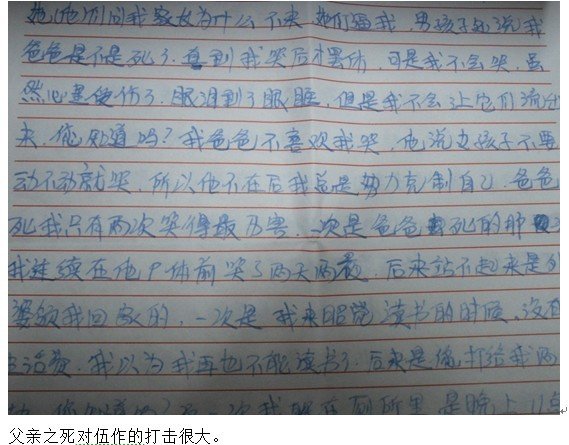 他们问我家长为什么不来,她们逼我,男孩子就说我
爸爸是不是死了,直到我哭后才罢休,可是我不会哭,虽
然心里很伤了,眼泪到了眼眶,但是我不会让它们流出
来,你知道吗?我爸爸不喜欢我哭,他说女孩子不要
动不动就哭,所以他不在后我总是努力克制自己,爸爸
死我只有两次哭得最厉害,一次是爸爸死的那
我连续在他尸体前哭了两天两夜,后来站不起来是外
婆领我回家的,一次是我来昭觉读书的时候,没有
生活费,我以为我再也不能读书了,后来是你打给我两
一次我躲在厕所里是晚上11点
父亲之死对伍作的打击很大。